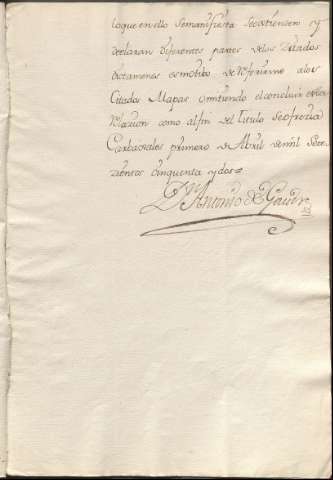 loque en ello Semanifiesta Seostienden y
declaran diferentes partes delos Citados
dictamenes es motibo de Referirme alos
Citados Mapas omitiendo el concluir esta
Relazion como al fin del titulo Seofrezia
Cardosales primero de Abril demil Sete
zientos Cinquenta ydos
Dn Antonio de Gaver